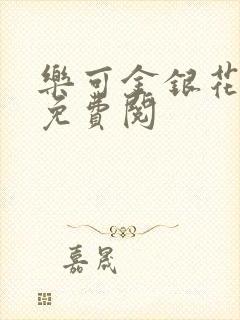 樂可金銀花
免費閱
嘉晟